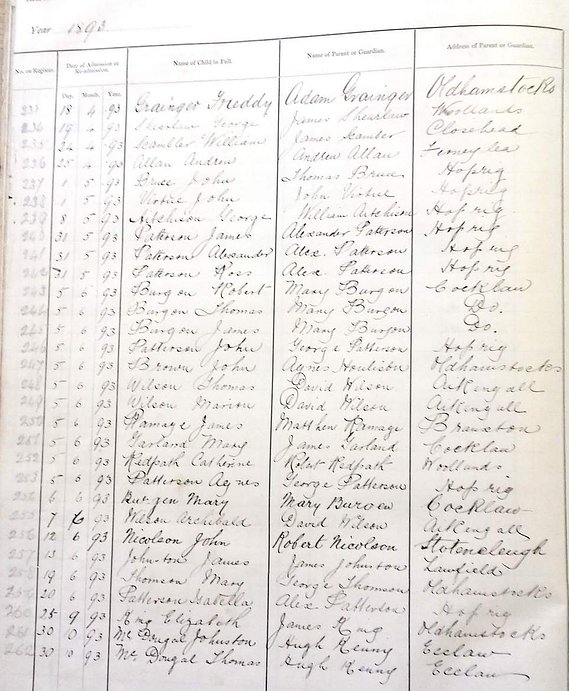 Year 1893
No. on Register. Date of Admission or Re-admission. Name of Child in Full. Name of Parent or Guardian. Address of Parent or Guardian.
Day. Month. Year.
18 4 93 Grainger Freddy Adam Grainger Oldhamstocks
19 4 93 Shearlaw George James Shearlaw Woodlands
235 24 4 93 Scambler William James Scambler Closehead
236 25 4 93 Allan Andrew Andrew Allan Ferneylea
237 1 5 93 Bruce John Thomas Bruce Hoprig
238 1 5 93 Virtue John John Virtue Hoprig
239 8 5 93 Aitchison George William Aitchison Hoprig
240 31 5 93 Patterson James Alexander Paterson Hoprig
241 31 5 93 Patterson Alexander Alex. Patterson Hoprig
242 31 5 93 Patterson Ross Alex Patterson Hoprig
243 5 6 93 Burgon Robert Mary Burgon Cocklaw
244 5 6 93 Burgon Thomas Mary Burgon Do.
245 5 6 93 Burgon James Mary Burgon Do.
246 5 6 93 Patterson John George Patterson Hoprig
247 5 6 93 Brown John Agnes Houlison Oldhamstocks
248 5 6 93 Wilson Thomas David Wilson Aitkengall
249 5 6 93 Wilson Marion David Wilson Aitkengall
250 5 6 93 Ramage James Matthew Ramage Branxton
251 5 6 93 Garland Mary James Garland Cocklaw
252 5 6 93 Redpath Catherine Robert Redpath Woollands
253 5 6 93 Patterson Agnes George Patterson Hoprig
254 6 6 93 Burgen Mary Mary Burgen Cocklaw
255 7 6 93 Wilson Archibald David Wilson Aitkengall
256 12 6 93 Nicolson John Robert Nicolson Stotencleugh
257 13 6 93 Johnston James James Johnston Lawfield
258 19 6 93 Thomson Mary George Thomson Oldhamstocks
259 20 6 93 Patterson Isabella Alex Patterson Hoprig
260 25 9 93 King Elizabeth James King Oldhamstocks
261 30 10 93 McDougal Johnston Hugh Kenny Ecclaw
262 30 10 93 McDougal Thomas Hugh Kenny Ecclaw